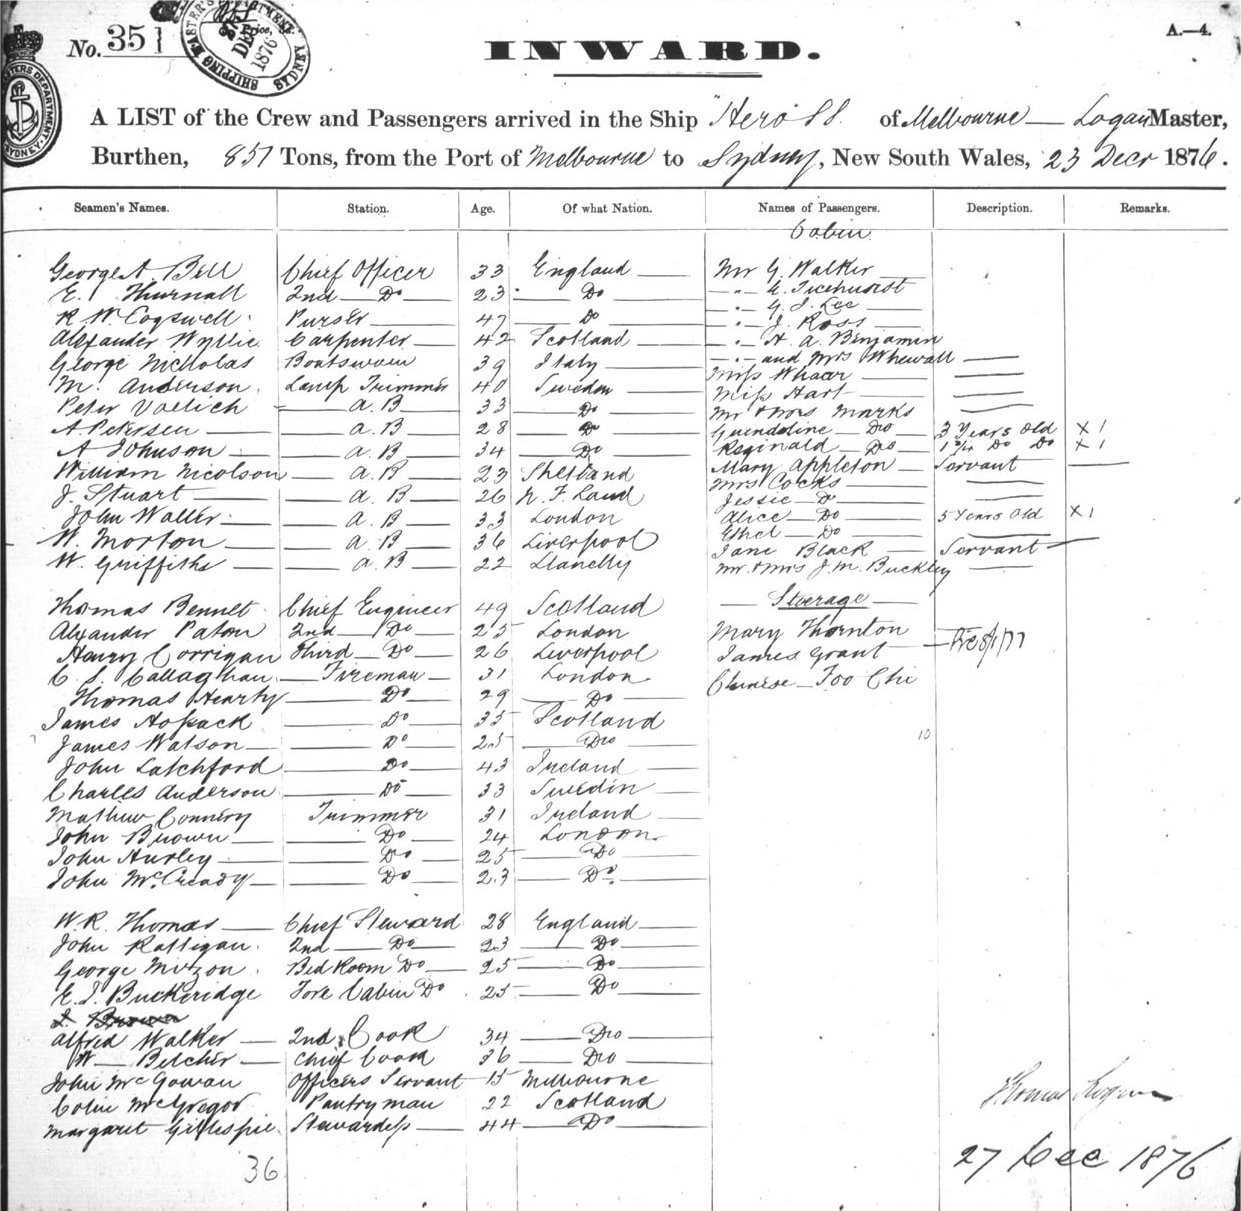 A.—4.
No. 351
SHIPPING MASTER'S DEPARTMENT SYDNEY
DEC 1876
INWARD.
A LIST of the Crew and Passengers arrived in the Ship "Hero SS. of Melbourne Logan Master,
Burthen, 851 Tons, from the Port of Melbourne to Sydney, New South Wales, 23 Decr 1876.
Seamen's Names. Station. Age. Of what Nation. Names of Passengers. Description. Remarks.
Cabin
George A. Bell Chief Officer 33 England Mr G. Walker
E. Thurnall 2nd Do 23 Do " E. Ticehurst
R. W. Cogswell Purser 47 Do " G. J. Lee
" J. Ross
Alexander Wyllie Carpenter 42 Scotland " H. A. Benjamin
George Nicholas Boatswain 39 Italy " and Mrs Whewall
M. Anderson Lamp Trimmer 40 Sweden Miss
Miss Hart
Peter Vaelich A.B 33 Do Mr & Mrs Marks
A. Petersen A.B 28 Do Guendoline Do 3 Years Old X 1
A Johnson A.B 34 Do Reginald Do 1 3/4 Do Do X 1
William Nicolson A.B 23 Shetland Mary Appleton Servant
J. Stuart A.B 26 N. F. Land Mrs Cocks
Jessie Do
John Waller A.B 33 London Alice Do 5 Years Old X 1
W. Morton A.B 36 Liverpool Ethel Do
Jane Black Servant
W. Griffiths A.B 22 Llanelly Mr. & Mrs J. M. Buckley
Thomas Bennet Chief Engineer 49 Scotland Steerage
Alexander Paton 2nd Do 25 London Mary Thornton
Henry Corrigan Third Do 26 Liverpool James Grant
C. S. Callaghan Fireman 31 London Chinese Foo Chi
Thomas Hearty Do 29 Do
James Do 35 Scotland
James Watson Do 25 Do 10
John Latchford Do 43 Ireland
Charles Anderson Do 33 Sweden
Mathew Connery Trimmer 31 Ireland
John Brown Do 24 London
John Hurley Do 25 Do
John McCready Do 23 Do
W. R. Thomas Chief Steward 28 England
John Rattigan 2nd Do 23 Do
George Mizon Bed Room Do 25 Do
E. J. Buckeridge Fore Cabin Do 25 Do
J. Brown
Alfred Walker 2nd Cook 34 Do
W Belcher Chief Cook 36 Do
John McGowan Officers Servant 15 Melbourne
Colin McGregor Pantryman 22 Scotland
Margaret Gillespie Stewardess 44 Do
Thomas Logan
36
27 Dec 1876